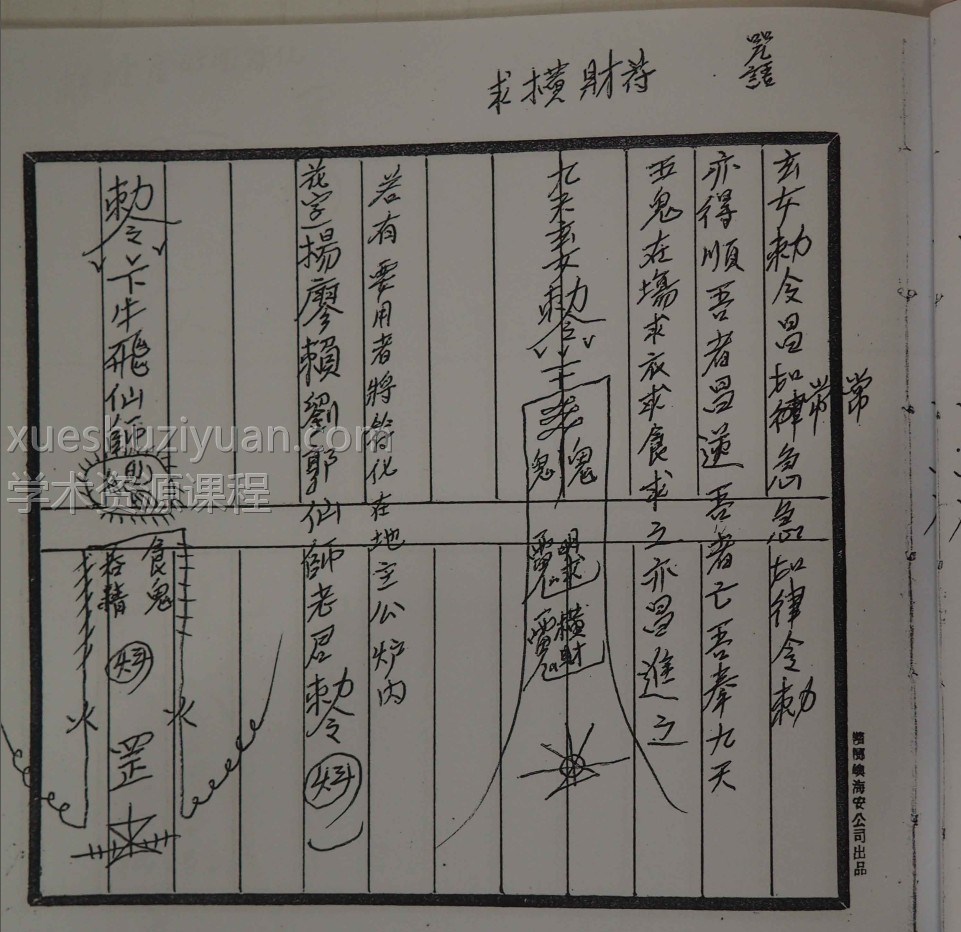 咒語
求橫財符
玄女勅令昌如律急急如律令勅
常常
亦得順吾者昌逆吾者亡吾奉九天
五鬼在塲求衣求食求立亦昌進立
九天玄女勅令
鬼鬼
求
橫財
若有要用者將符化在地主公炉内
花字楊廖賴劉郭仙師老君勅令
勅令
牛飛仙師
食鬼
吞精
火火
罡
海安公司出品
xueshuziyuan.com
学术资源课程